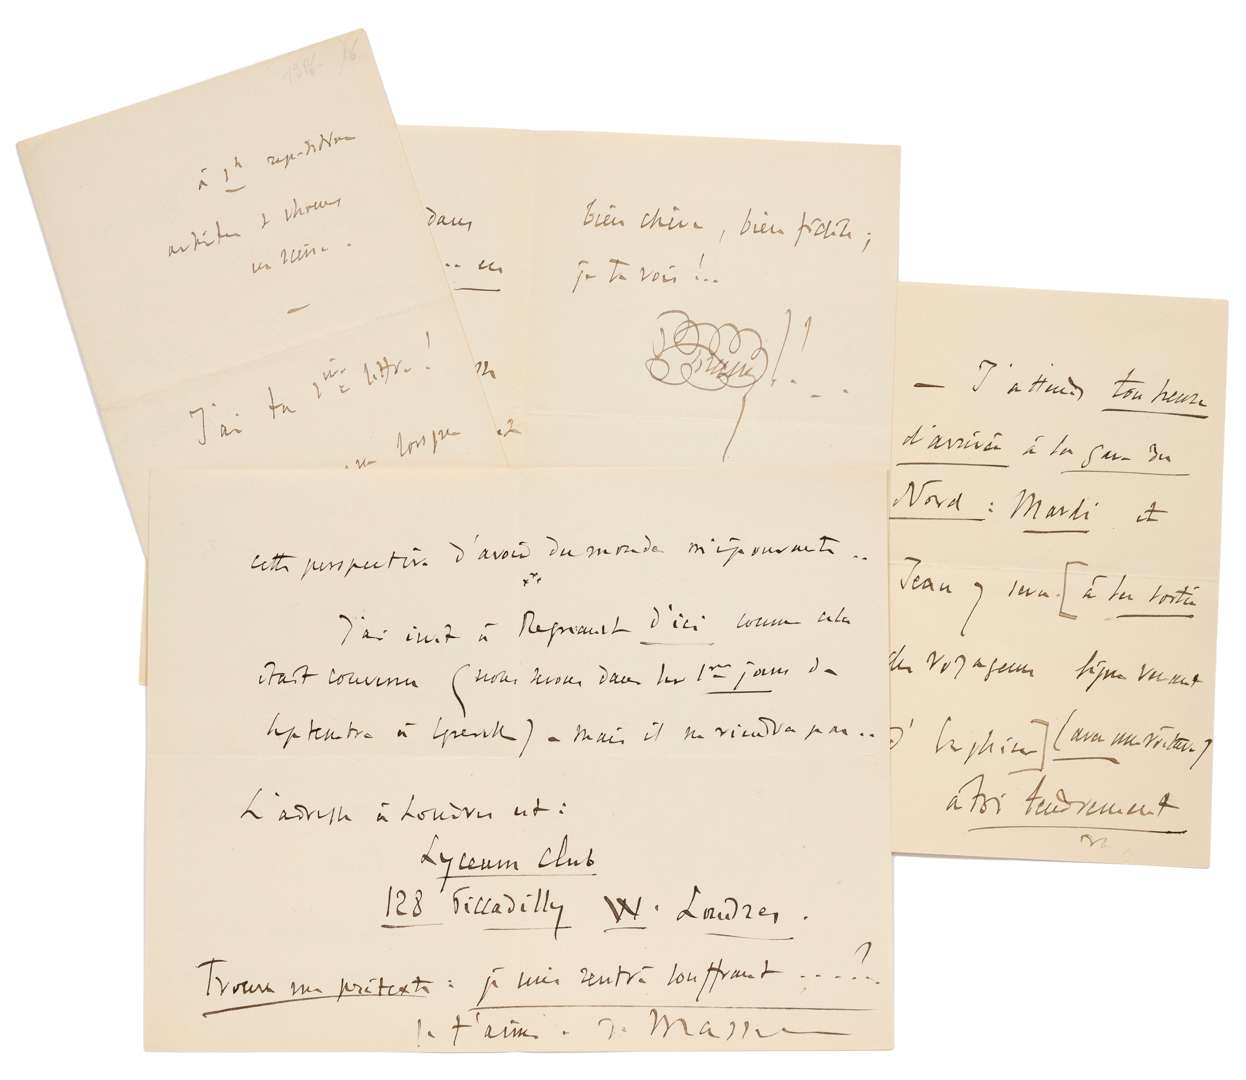 à 1h répétition
artistes & chœurs
en scène.
J'ai ta 1ère lettre!
lorsque
dans
en
bien chère, bien fidèle;
je te vois!..
— J'attends ton heure
d'arrivée à la gare du
Nord: Mardi et
Jean y sera [à la sortie
des voyageurs ligne venant
d'Enghien] (avec une voiture)
à toi tendrement
cette perspective d'avoir du monde m'épouvante..
J'ai écrit à Regnault d'ici comme cela
était convenu (nous serons dans les 1ers jours de
septembre à Égreville) – mais il ne viendra pas..
L'adresse à Londres est:
Lyceum Club
128 Piccadilly W. Londres.
Trouve un prétexte: je suis rentré souffrant ....?..
Je t'aime. J. Mass